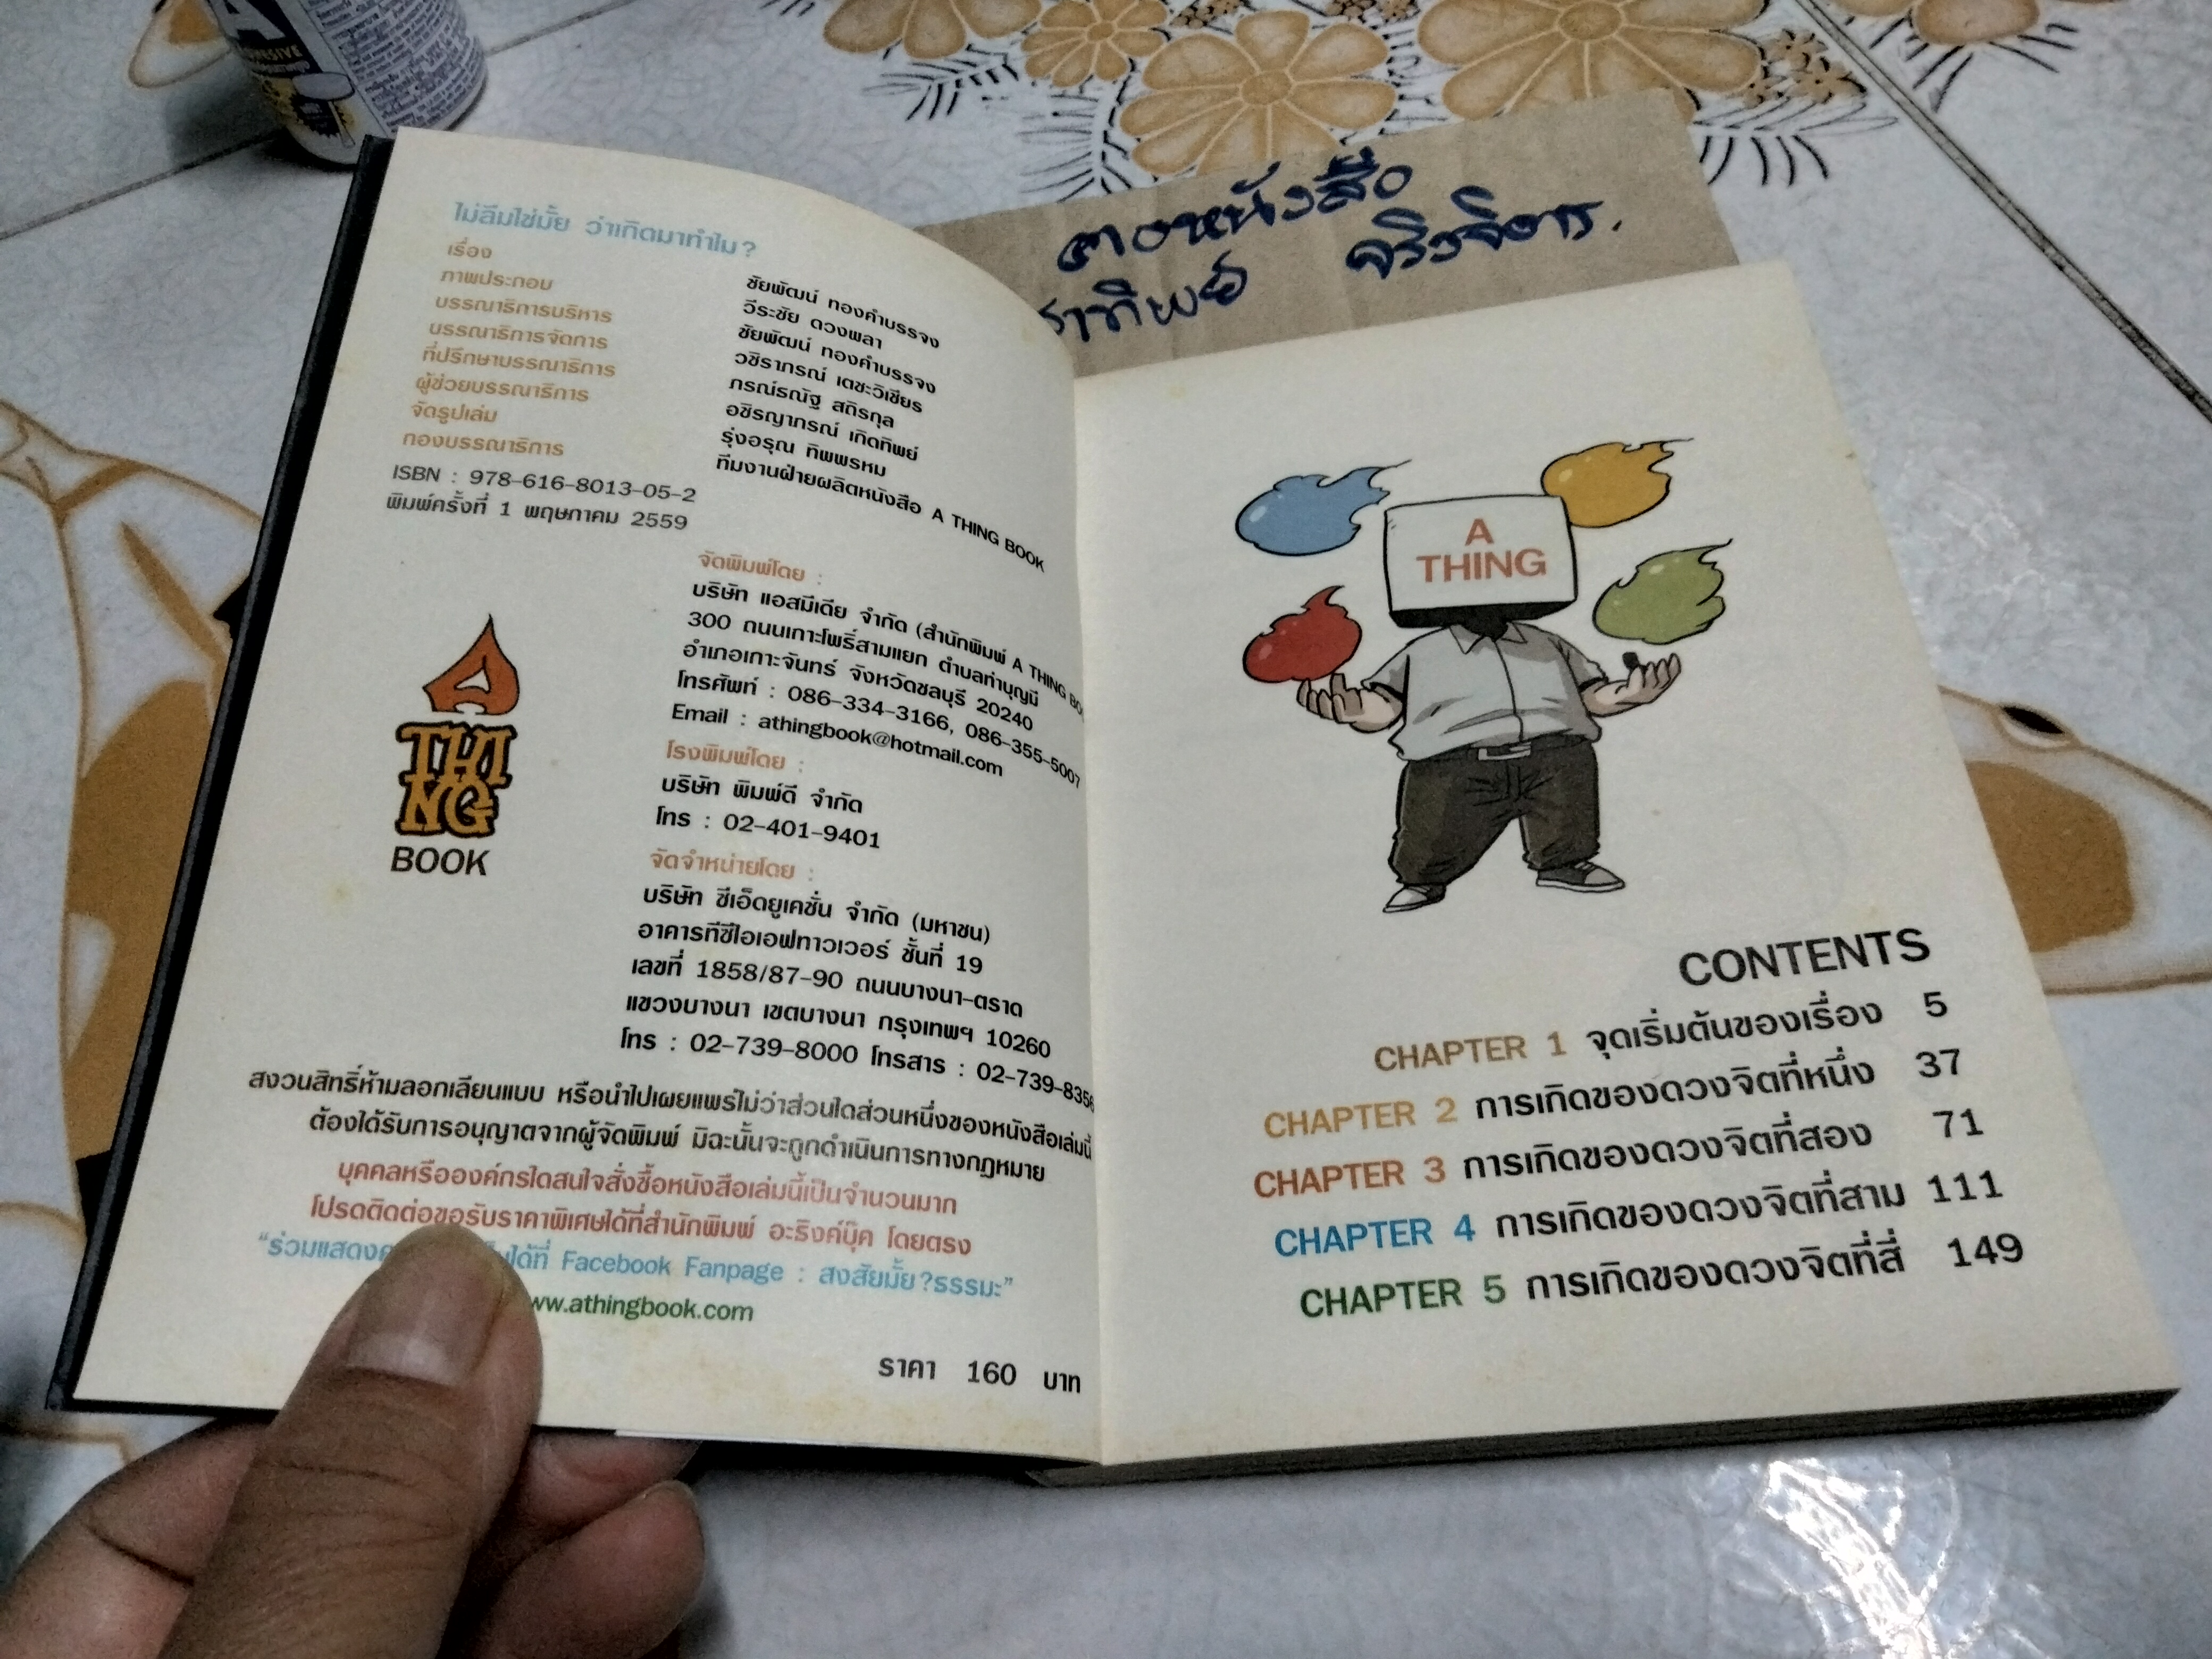 ADHESIVE
ไม่ลืมใช่มั้ย ว่าเกิดมาทำไม?
เรื่อง ชัยพัฒน์ ทองคำบรรจง
ภาพประกอบ วีระชัย ดวงพลา
บรรณาธิการบริหาร ชัยพัฒน์ ทองคำบรรจง
บรรณาธิการจัดการ วชิราภรณ์ เตชะวิเชียร
ที่ปรึกษาบรรณาธิการ ภรณ์รณัฐ สถิรกุล
ผู้ช่วยบรรณาธิการ อชิรญาภรณ์ เกิดทิพย์
จัดรูปเล่ม รุ่งอรุณ ทิพพรหม
กองบรรณาธิการ ทีมงานฝ่ายผลิตหนังสือ A THING BOOK
ISBN : 978-616-8013-05-2
พิมพ์ครั้งที่ 1 พฤษภาคม 2559
จัดพิมพ์โดย :
บริษัท แอสมีเดีย จำกัด (สำนักพิมพ์ A THING BO
300 ถนนเกาะโพธิ์สามแยก ตำบลท่าบุญมี
อำเภอเกาะจันทร์ จังหวัดชลบุรี 20240
โทรศัพท์ : 086-334-3166, 086-355-5007
Email : athingbook@hotmail.com
โรงพิมพ์โดย :
บริษัท พิมพ์ดี จำกัด
โทร : 02-401-9401
จัดจำหน่ายโดย :
บริษัท ซีเอ็ดยูเคชั่น จำกัด (มหาชน)
อาคารทีซีไอเอฟทาวเวอร์ ชั้นที่ 19
เลขที่ 1858/87-90 ถนนบางนา-ตราด
แขวงบางนา เขตบางนา กรุงเทพฯ 10260
โทร : 02-739-8000 โทรสาร : 02-739-8356
A
THI
NG
BOOK
สงวนสิทธิ์ห้ามลอกเลียนแบบ หรือนำไปเผยแพร่ไม่ว่าส่วนใดส่วนหนึ่งของหนังสือเล่มนี้
ต้องได้รับการอนุญาตจากผู้จัดพิมพ์ มิฉะนั้นจะถูกดำเนินการทางกฎหมาย
บุคคลหรือองค์กรใดสนใจสั่งซื้อหนังสือเล่มนี้เป็นจำนวนมาก
โปรดติดต่อขอรับราคาพิเศษได้ที่สำนักพิมพ์ อะธิงค์บุ๊ค โดยตรง
"ร่วมแสดง ได้ที่ Facebook Fanpage : สงสัยมั้ย?ธรรมะ"
ww.athingbook.com
ราคา 160 บาท
A
THING
CONTENTS
CHAPTER 1 จุดเริ่มต้นของเรื่อง 5
CHAPTER 2 การเกิดของดวงจิตที่หนึ่ง 37
CHAPTER 3 การเกิดของดวงจิตที่สอง 71
CHAPTER 4 การเกิดของดวงจิตที่สาม 111
CHAPTER 5 การเกิดของดวงจิตที่สี่ 149